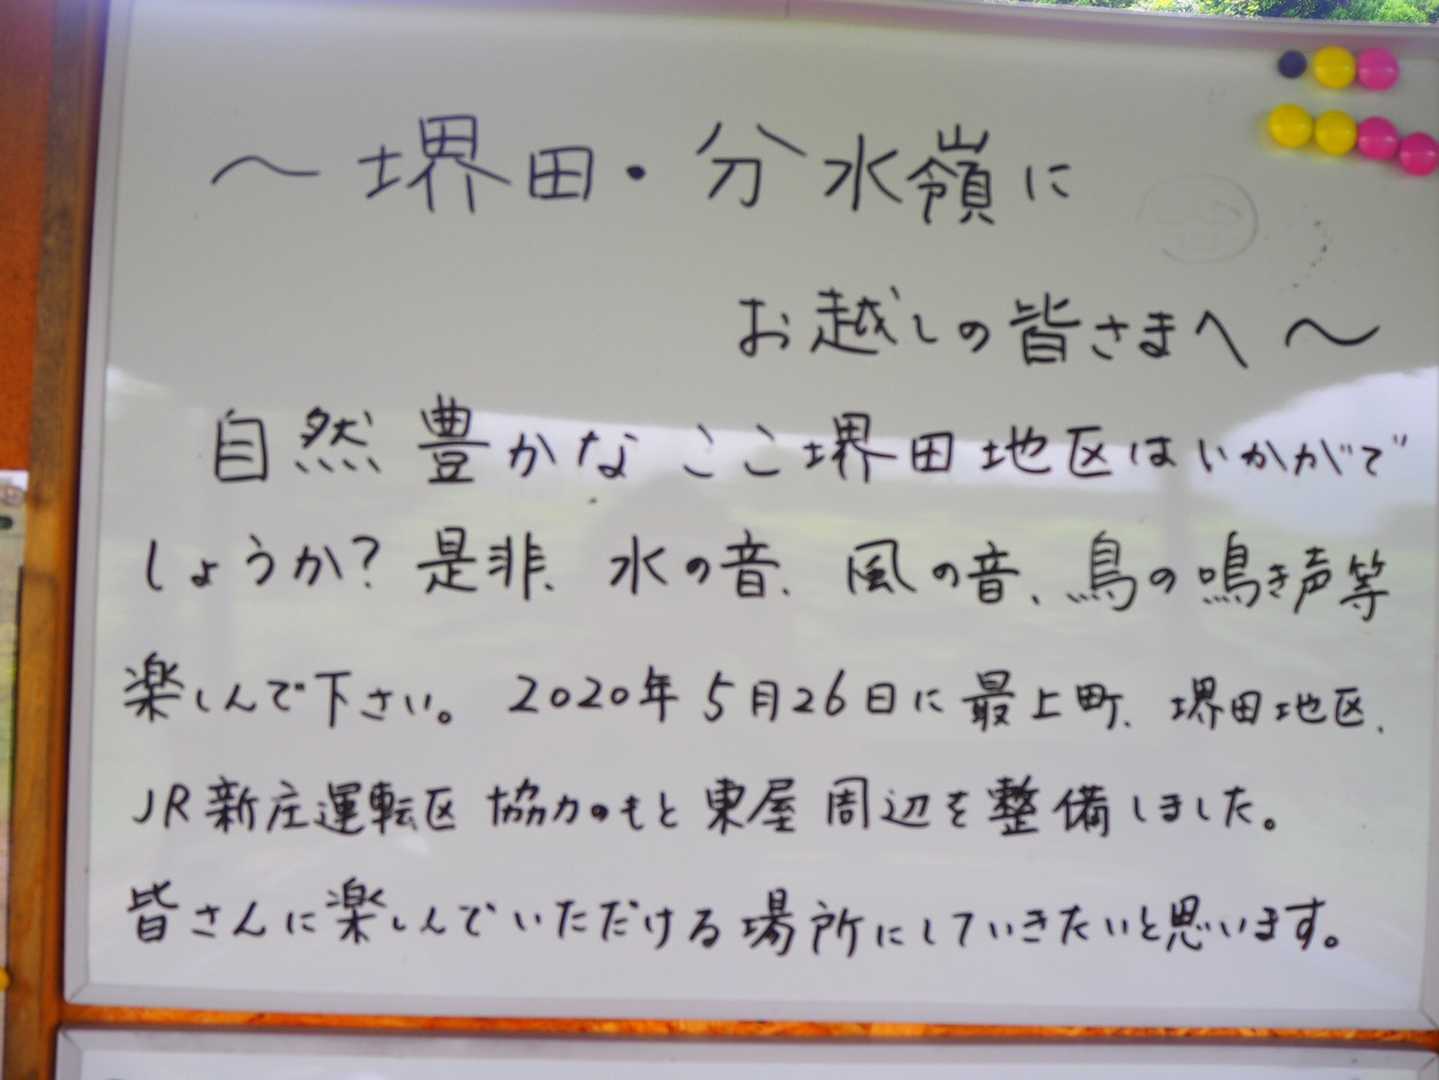 ～堺田・分水嶺に
お越しの皆さまへ～
自然豊かなここ堺田地区はいかがで
しょうか?是非、水の音、風の音、鳥の鳴き声等
楽しんで下さい。2020年5月26日に最上町、堺田地区、
JR新庄運転区協力のもと東屋周辺を整備しました。
皆さんに楽しんでいただける場所にしていきたいと思います。